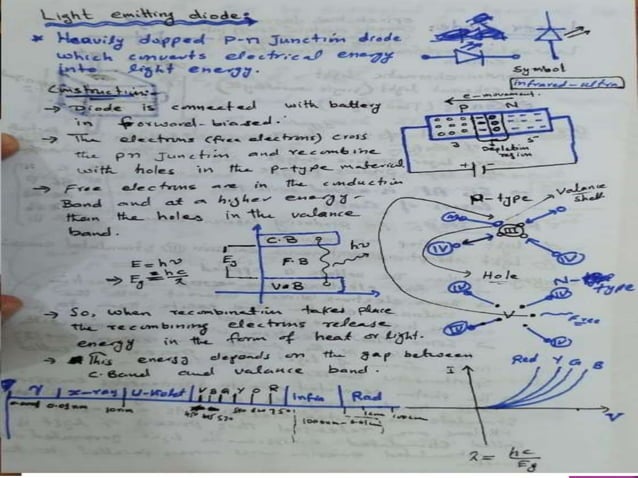 Light emitting diode:
* Heavily dopped p-n Junction diode
which converts electrical energy
into light energy.
Symbol
infrared-ultra
Construction:-
→ Diode is connected with battery
in forward-biased.
→ The electrons (free electrons) cross
the pn Junction and recombine
with holes in the p-type material
→ Free electrons are in the conduction
Band and at a higher energy-
than the holes in the valance
band.
e- movement
P N
Depletion
region
+ -
p-type
Valance
shell
IV
III
IV
IV
Hole
N-type
IV
IV
V
Free
IV
IV
C.B
Eg
F.B
hν
V.B
E=hν
→ Eg = hc/λ
→ So, when recombination takes place
the recombining electrons release
energy in the form of heat or light.
→ This energy depends on the gap between
C-Band and valance band.
Red Y G B
I
V
γ | x-ray | U-violet | V B G Y O R | Infra | Rad
0.01nm
10nm
λ = hc/Eg